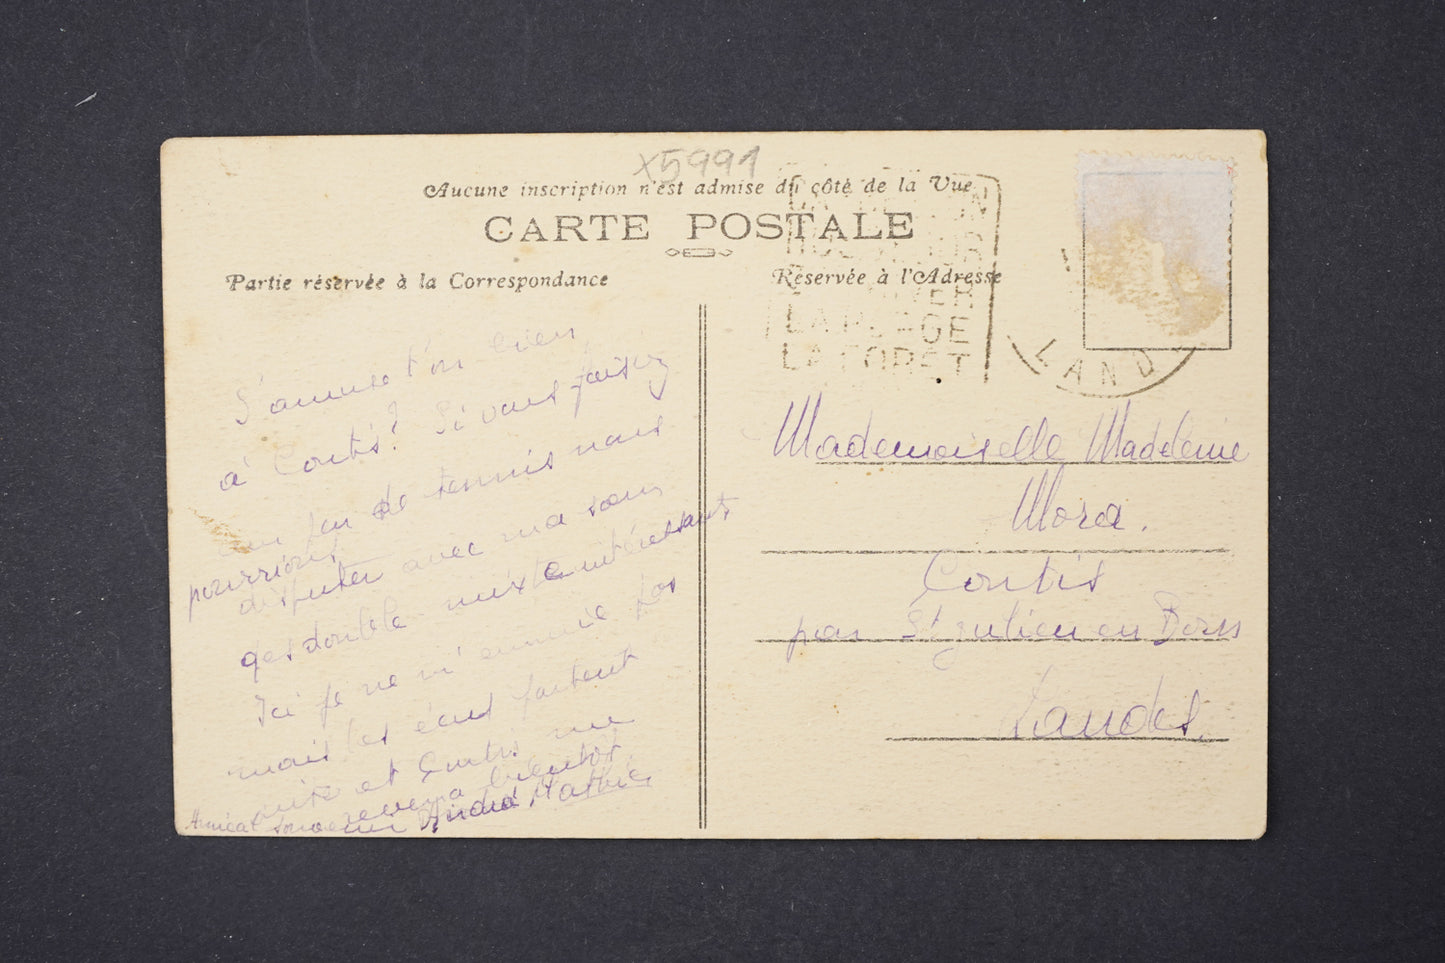 X5991
Aucune inscription n'est admise du côté de la Vue
CARTE POSTALE
Partie réservée à la Correspondance
Réservée à l'Adresse
LA PLAGE
LA FORET
LAND
S'amuse t'on bien
à Contis? Si vous faisiez
un jeu de tennis nous
pourrions
disputer avec ma soeur
des double mixte intéressants
Ici je ne m'ennuie pas
mais les étés partent
vite et Contis me
reverra bientôt
Amical souvenir André Mathie
Mademoiselle Madeleine
Mora.
Contis
par St Julien en Born
Landes.